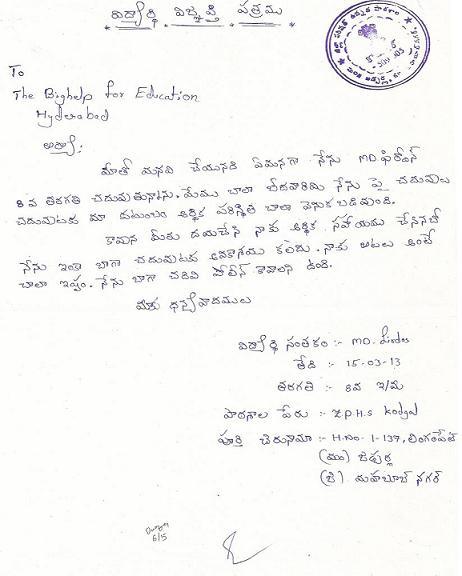 విద్యార్థి విజ్ఞప్తి పత్రము
To
The Bighelp for Education
Hyderabad
ఆర్యా:
మీతో మనవి చేయునది ఏమనగా నేను MD. ఫిరోజ్
8వ తరగతి చదువుతున్నాను. మేము చాలా బీదవారిమి నేను పై చదువులు
చదువుటకు మా కుటుంబ ఆర్థిక పరిస్థితి చాలా వెనుకబడివుంది.
కావున మీరు దయచేసి నాకు ఆర్థిక సహాయము చేసినచో
నేను ఇంకా బాగా చదువుటకు అవకాశము కలదు. నాకు ఆటలు అంటే
చాలా ఇష్టం. నేను బాగా చదివి పోలీస్ కావాలని ఉంది.
మీకు ధన్యవాదములు
విద్యార్థి సంతకం :- MD. firdos
తేది :- 15-03-13
తరగతి :- 8వ ఇ/మీ
పాఠశాల పేరు :- Z.P.H.S Kodgal
పూర్తి చిరునామా :- H.No. 1-139, లింగంపేట్
(మం) జడ్చర్ల
(జి) మహబూబ్ నగర్
6/5